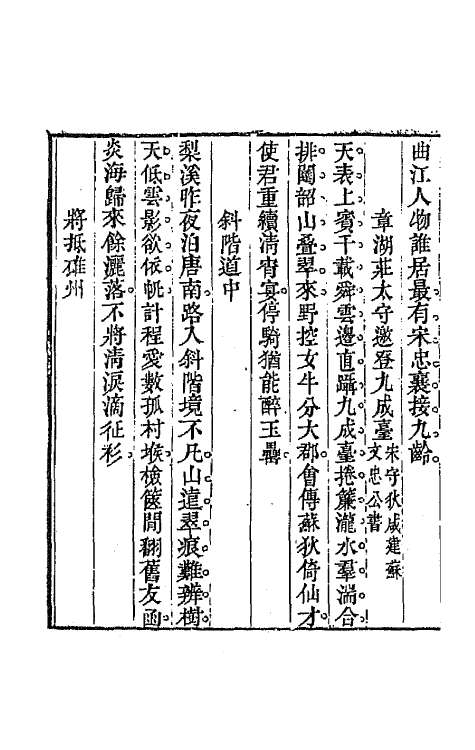 曲江人物誰居最有宋忠襄接九齡
章湖莊太守邀登九成臺宋守狄咸建蘇文忠公書
天表上賓千載舜雲邊直躡九成臺捲簾瀧水羣湍合
排闥韶山叠翠來野控女牛分大郡會傳蘇狄倚仙才
使君重續清宵宴停騎猶能醉玉罍
斜階道中
梨溪昨夜泊唐南路入斜階境不凡山遠翠痕難辨樹
天低雲影欲依帆計程愛數孤村堠檢篋閒翻舊友函
炎海歸來餘灑落不將清淚滴征衫
將抵雄州